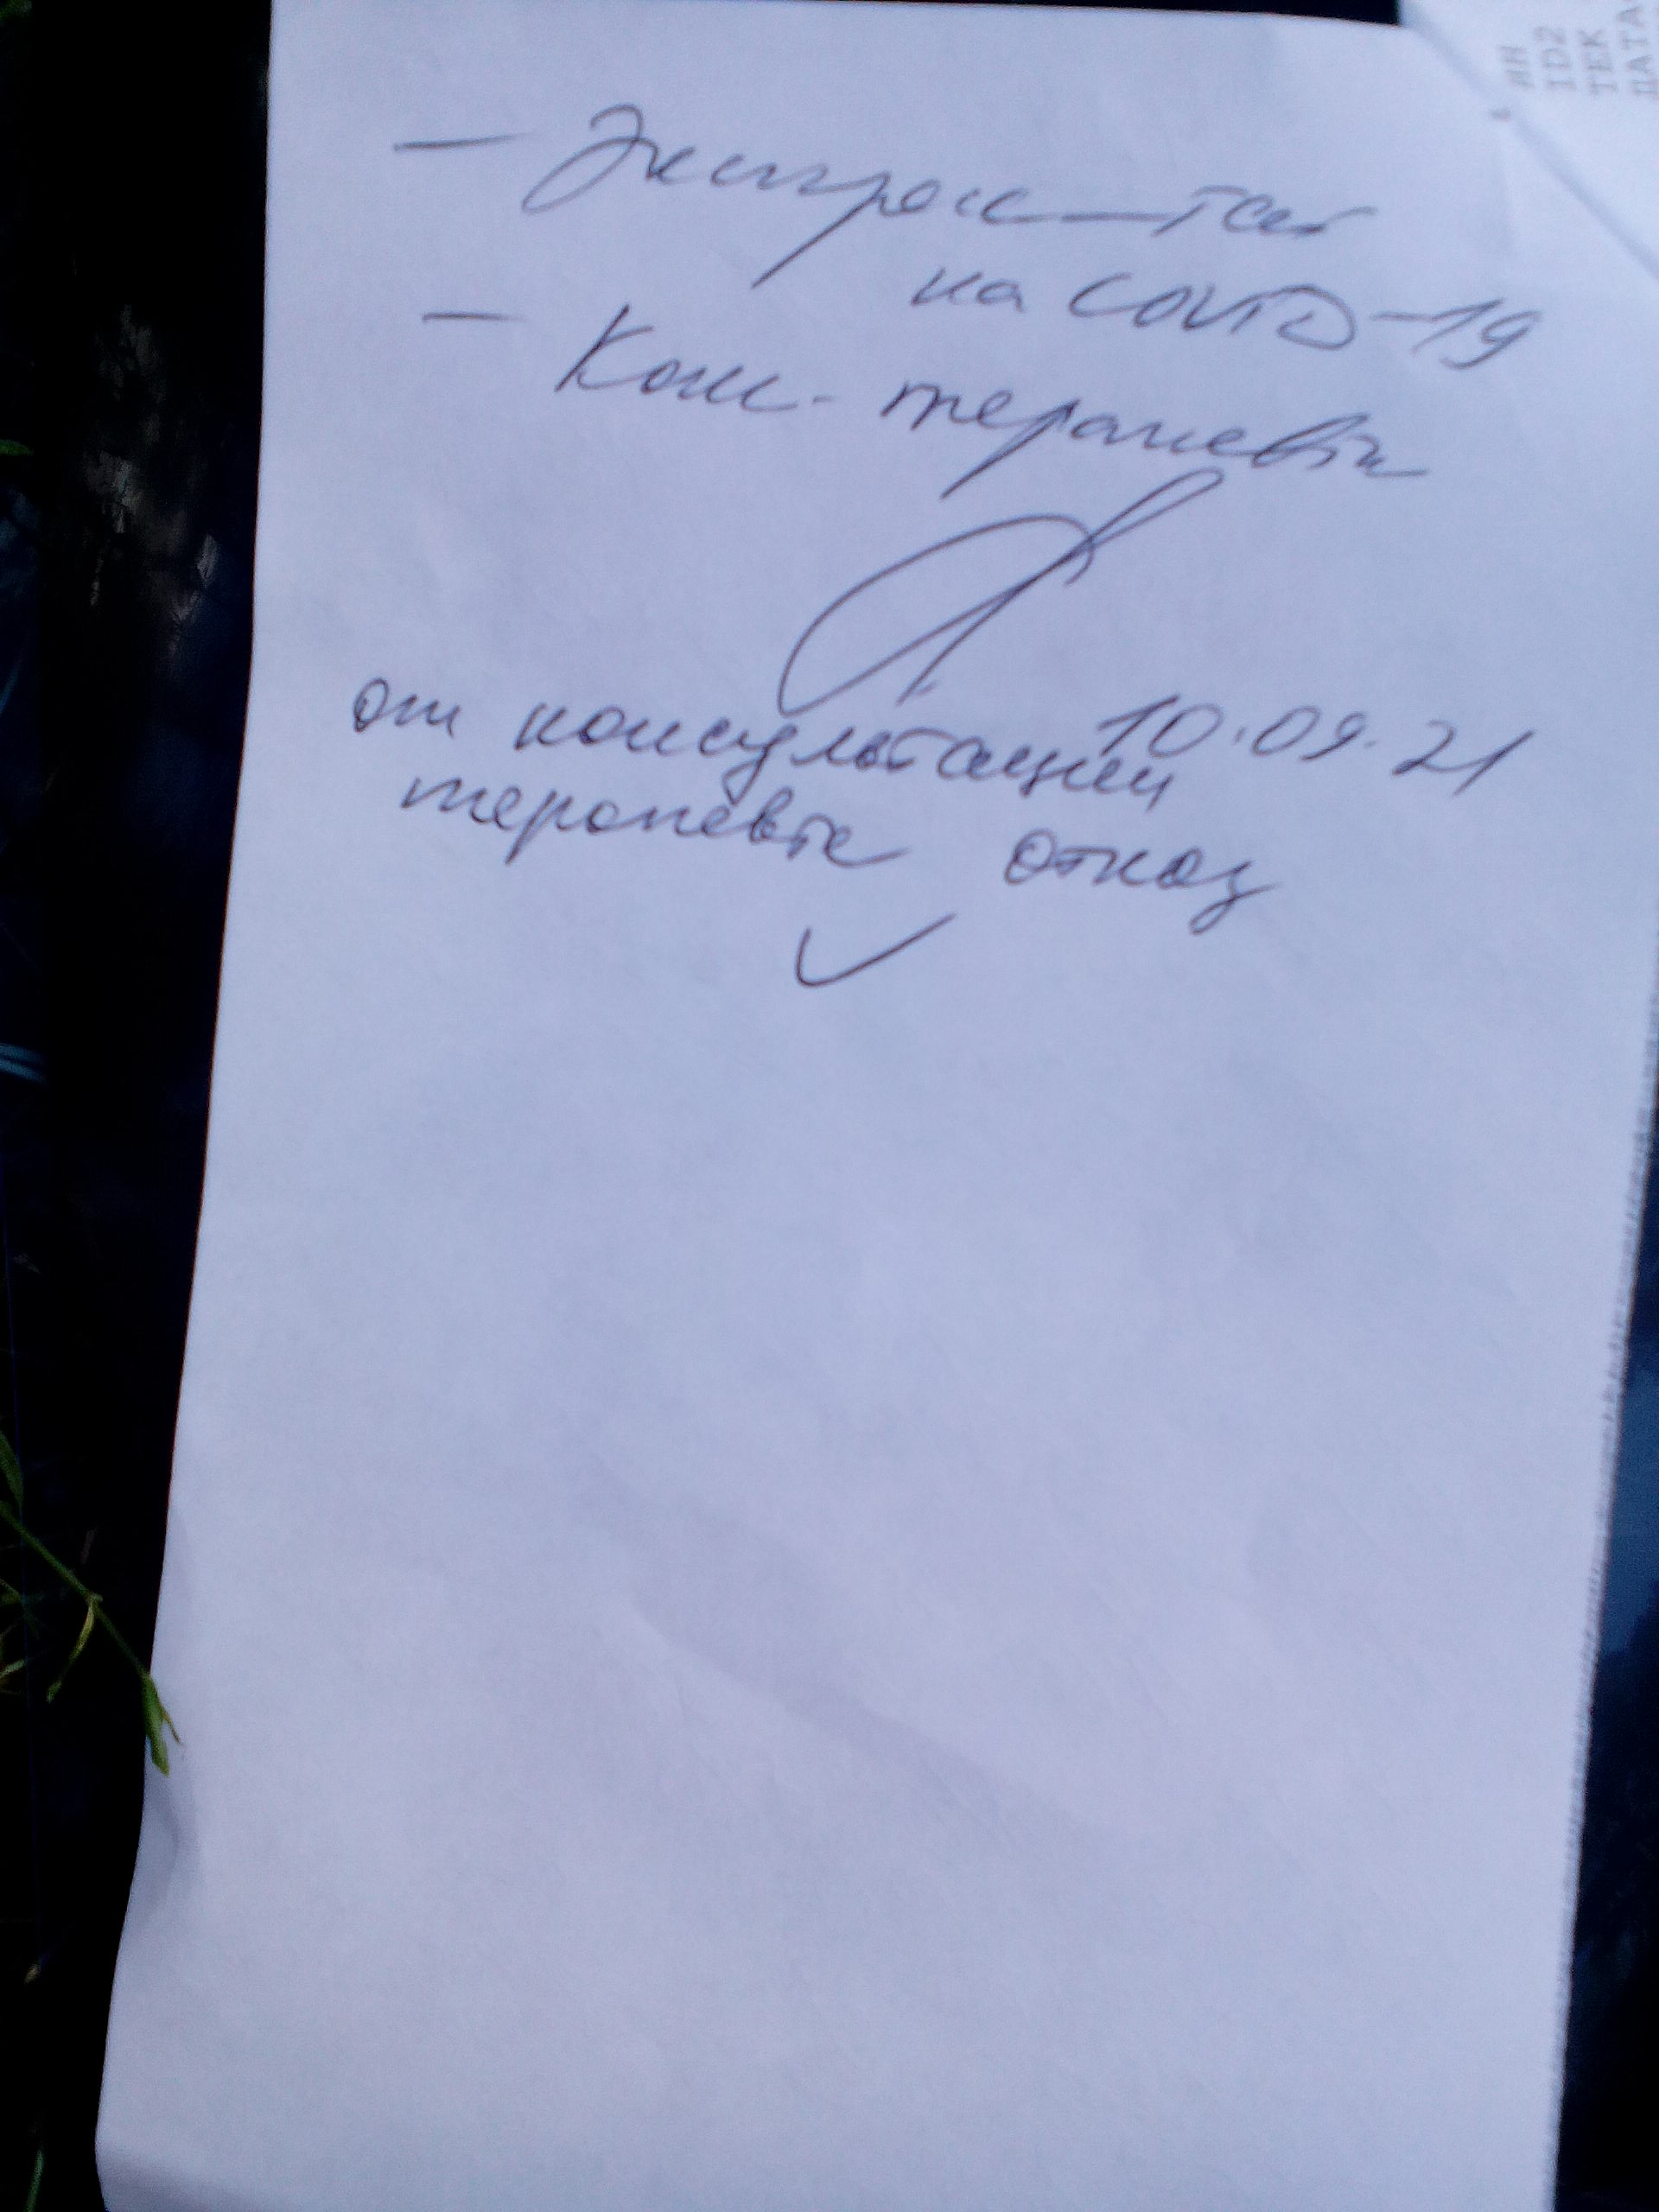 — Экспресс-тест
на COVID-19
— Конс. терапевта
10.09.21
от консультации
терапевта отказ
ЯН
ID2
ТЕК
ДАТА